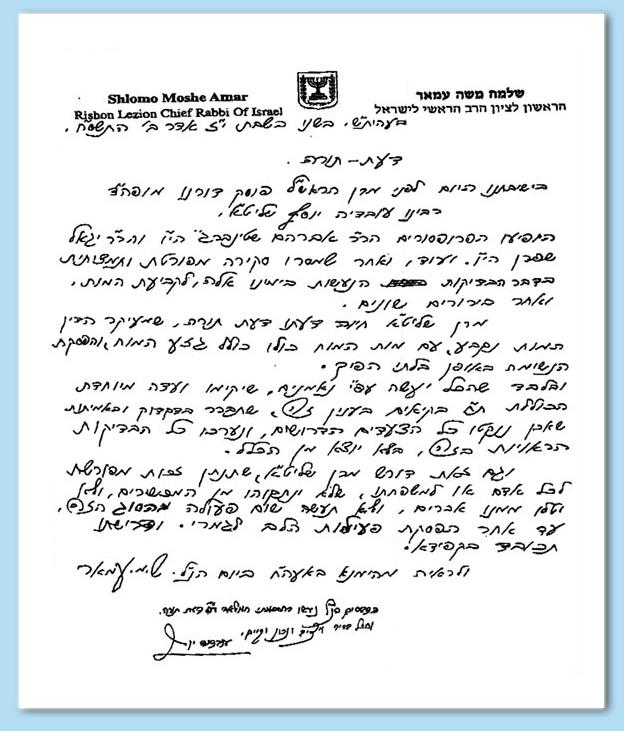 Shlomo Moshe Amar
שלמה משה עמאר
Rishon Lezion Chief Rabbi Of Israel
הראשון לציון הרב הראשי לישראל
בעהית"ש, בשני בשבת י"ז אדר ב' התשס"ח.
דעת - תורה.
בישיבתנו היום לפני מרן הראש"ל פוסק דורנו מופה"ד
רבינו עובדיה יוסף שליט"א,
הופיעו הפרופסורים הר"ר אברהם שטינברג הי"ו והר"ר יגאל
שפרן הי"ו. ועוד, ואחר שמסרו סקירה מפורטת ותמציתית
בדבר הבדיקות הנעשות בימינו אלה, לקביעת המות.
ואחר בירורים שונים.
מרן שליט"א חיוה דעתו דעת תורה, שמעיקר הדין
המות נקבע, עם מות המוח כולו כולל גזע המוח, והפסקת
הנשימה באופן בלתי הפיך.
ובלבד שהכל יעשה עפ"י נאמנים, שיקימו ועדה מיוחדת
הכוללת ת"ח בקיאים בענין זה, שתברר בדקדוק ובאמיתות
שאכן ננקטו כל הצעדים הדרושים, ונערכו כל הבדיקות
הראויות בזה, בלא יוצא מן הכלל.
וגם זאת דורש מרן שליט"א, שתנתן זכות מפורשת
לכל אדם או למשפחתו, שלא ינתקוהו מן המכשירים, ולא
יטלו ממנו אברים, ולא תעשה שום פעולה מהסוג הזה,
עד אחר הפסקת פעילות הלב לגמרי. ודרישתו
תכובד בקפידא.
ולראיה מהימנא באעה"ח ביום הנ"ל. ש.מ.עמאר
הדברים הנ"ל נאמרו
וקיים.
עובדיה יוסף